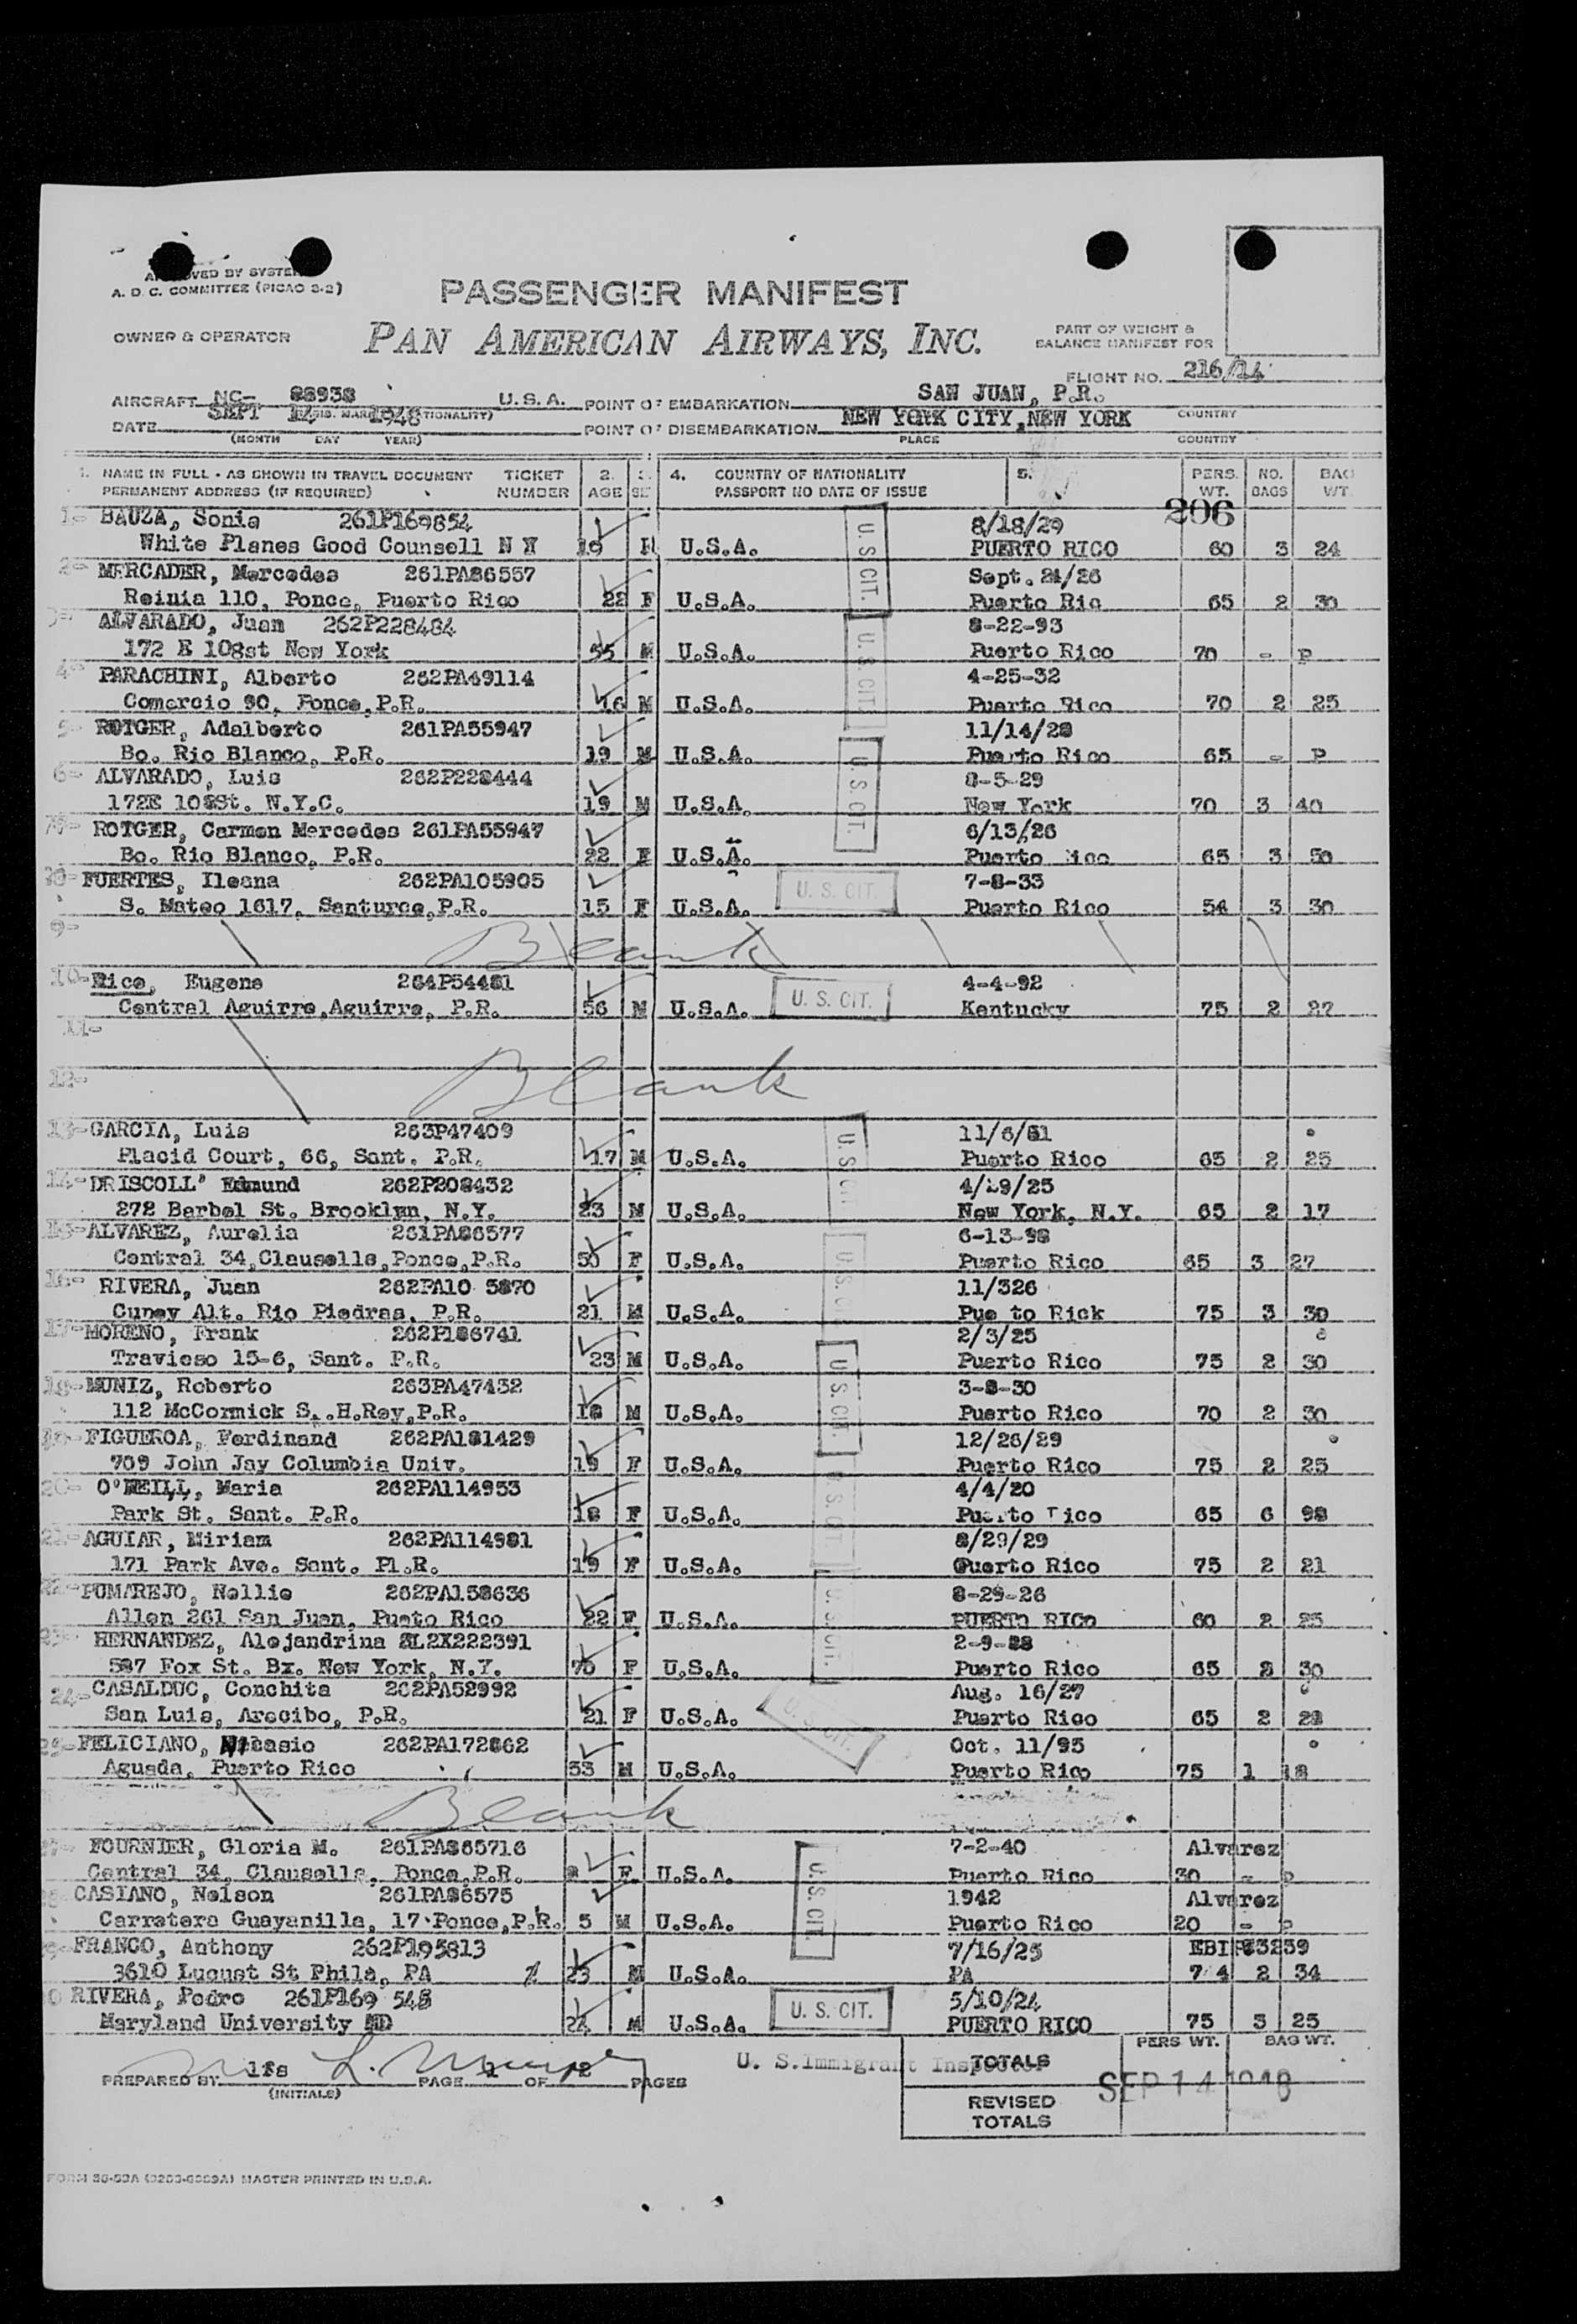 APPROVED BY SYSTEM
A. D. C. COMMITTEE (PICAO 2-2)
PASSENGER MANIFEST
OWNER & OPERATOR
PAN AMERICAN AIRWAYS, INC.
PART OF WEIGHT &
BALANCE MANIFEST FOR
FLIGHT NO. 216/14
AIRCRAFT NC- 88938 U.S.A. POINT OF EMBARKATION SAN JUAN, P.R.
COUNTRY
DATE SEPT 14 1948 POINT OF DISEMBARKATION NEW YORK CITY, NEW YORK
(MONTH DAY YEAR) PLACE COUNTRY
1. NAME IN FULL - AS SHOWN IN TRAVEL DOCUMENT TICKET 2. 3. 4. COUNTRY OF NATIONALITY 5. PERS. NO. BAG
PERMANENT ADDRESS (IF REQUIRED) NUMBER AGE SEX PASSPORT NO DATE OF ISSUE WT. BAGS WT.
206
1- BAUZA, Sonia 261P169854 8/18/29
White Planes Good Counsell N Y 19 U.S.A. U.S. CIT. PUERTO RICO 60 3 24
2- MERCADER, Mercedes 261PA86557 Sept. 24/26
Reinia 110, Ponce, Puerto Rico 22 F U.S.A. Puerto Ric 65 2 30
3- ALVARADO, Juan 262P228484 8-22-93
172 E 108st New York 55 M U.S.A. U.S. CIT. Puerto Rico 70 - P
4- PARACHINI, Alberto 262PA49114 4-25-32
Comercio 90, Ponce, P.R. 16 M U.S.A. Puerto Rico 70 2 25
5- ROTGER, Adalberto 261PA55947 11/14/28
Bo. Rio Blanco, P.R. 19 M U.S.A. Puerto Rico 65 - P
6- ALVARADO, Luis 262P228444 8-5-29
172E 108St. N.Y.C. 19 M U.S.A. U.S. CIT. New York 70 3 40
7- ROTGER, Carmen Mercedes 261PA55947 6/13/26
Bo. Rio Blanco, P.R. 22 F U.S.A. Puerto Rico 65 3 50
FUERTES, Ileana 262PA105905 7-8-33
S. Mateo 1617, Santurce, P.R. 15 F U.S.A. U. S. CIT. Puerto Rico 54 3 30
9-
Blank
10- Rice, Eugene 264P54481 4-4-92
Central Aguirre, Aguirre, P.R. 56 M U.S.A. U. S. CIT. Kentucky 75 2 27
11-
12- Blank
13- GARCIA, Luis 263P47409 11/6/31
Placid Court, 66, Sant. P.R. 17 M U.S.A. U.S. CIT. Puerto Rico 65 2 25
14- DRISCOLL' Edmund 262P208432 4/29/25
272 Barbel St. Brooklyn, N.Y. 23 M U.S.A. New York, N.Y. 65 2 17
15- ALVAREZ, Aurelia 261PA86577 6-13-98
Central 34, Clausells, Ponce, P.R. 50 F U.S.A. U.S. CIT. Puerto Rico 65 3 27
16- RIVERA, Juan 262PA10 5870 11/326
Cupey Alt. Rio Piedras, P.R. 21 M U.S.A. Pue to Rick 75 3 30
17- MORENO, Frank 262P186741 2/3/25
Travieso 15-6, Sant. P.R. 23 M U.S.A. U.S. CIT. Puerto Rico 75 2 30
18- MUNIZ, Roberto 263PA47432 3-8-30
112 McCormick S..H.Rey, P.R. 18 M U.S.A. Puerto Rico 70 2 30
19- FIGUEROA, Ferdinand 262PA181429 12/26/29
709 John Jay Columbia Univ. 19 F U.S.A. Puerto Rico 75 2 25
20- O'NEILL, Maria 262PA114953 4/4/20
Park St. Sant. P.R. 18 F U.S.A. U.S. CIT. Puerto Rico 65 6 98
21- AGUIAR, Miriam 262PA114981 8/29/29
171 Park Ave. Sant. Pl.R. 19 F U.S.A. Puerto Rico 75 2 21
22- PUMAREJO, Nellie 262PA158636 8-29-26
Allen 261 San Juan, Pueto Rico 22 F U.S.A. U.S. CIT. PUERTO RICO 60 2 25
23- HERNANDEZ, Alejandrina 2L2X222391 2-9-
587 Fox St. Bx. New York, N.Y. 70 F U.S.A. Puerto Rico 65 2 30
24- CASALDUC, Conchita 262PA52992 Aug. 16/27
San Luis, Arecibo, P.R. 21 F U.S.A. U. S. CIT. Puerto Rico 65 2 28
25- FELICIANO, 262PA172862 Oct. 11/95
Aguada, Puerto Rico 53 M U.S.A. Puerto Rico 75 1 18
Blank
FOURNIER, Gloria M. 261PA865716 7-2-40 Alvarez
Central 34, Clausells, Ponce, P.R. 8 F U.S.A. U.S. CIT. Puerto Rico 30 - P
CASIANO, Nelson 261PA86575 1942 Alvarez
Carratera Guayanilla, 17 Ponce, P.R. 5 M U.S.A. Puerto Rico 20 - P
FRANCO, Anthony 262P195813 7/16/25
3610 Lucust St Phila, PA 23 M U.S.A. PA 74 2 34
RIVERA, Pedro 261P169 548 5/10/24
Maryland University MD 24 M U.S.A. U. S. CIT. PUERTO RICO 75 3 25
PREPARED BY PAGE 1 OF 2 PAGES
(INITIALS)
U. S. Immigrant Inspector
TOTALS PERS WT. BAG WT.
SEP 14 1948
REVISED
TOTALS
MASTER PRINTED IN U.S.A.